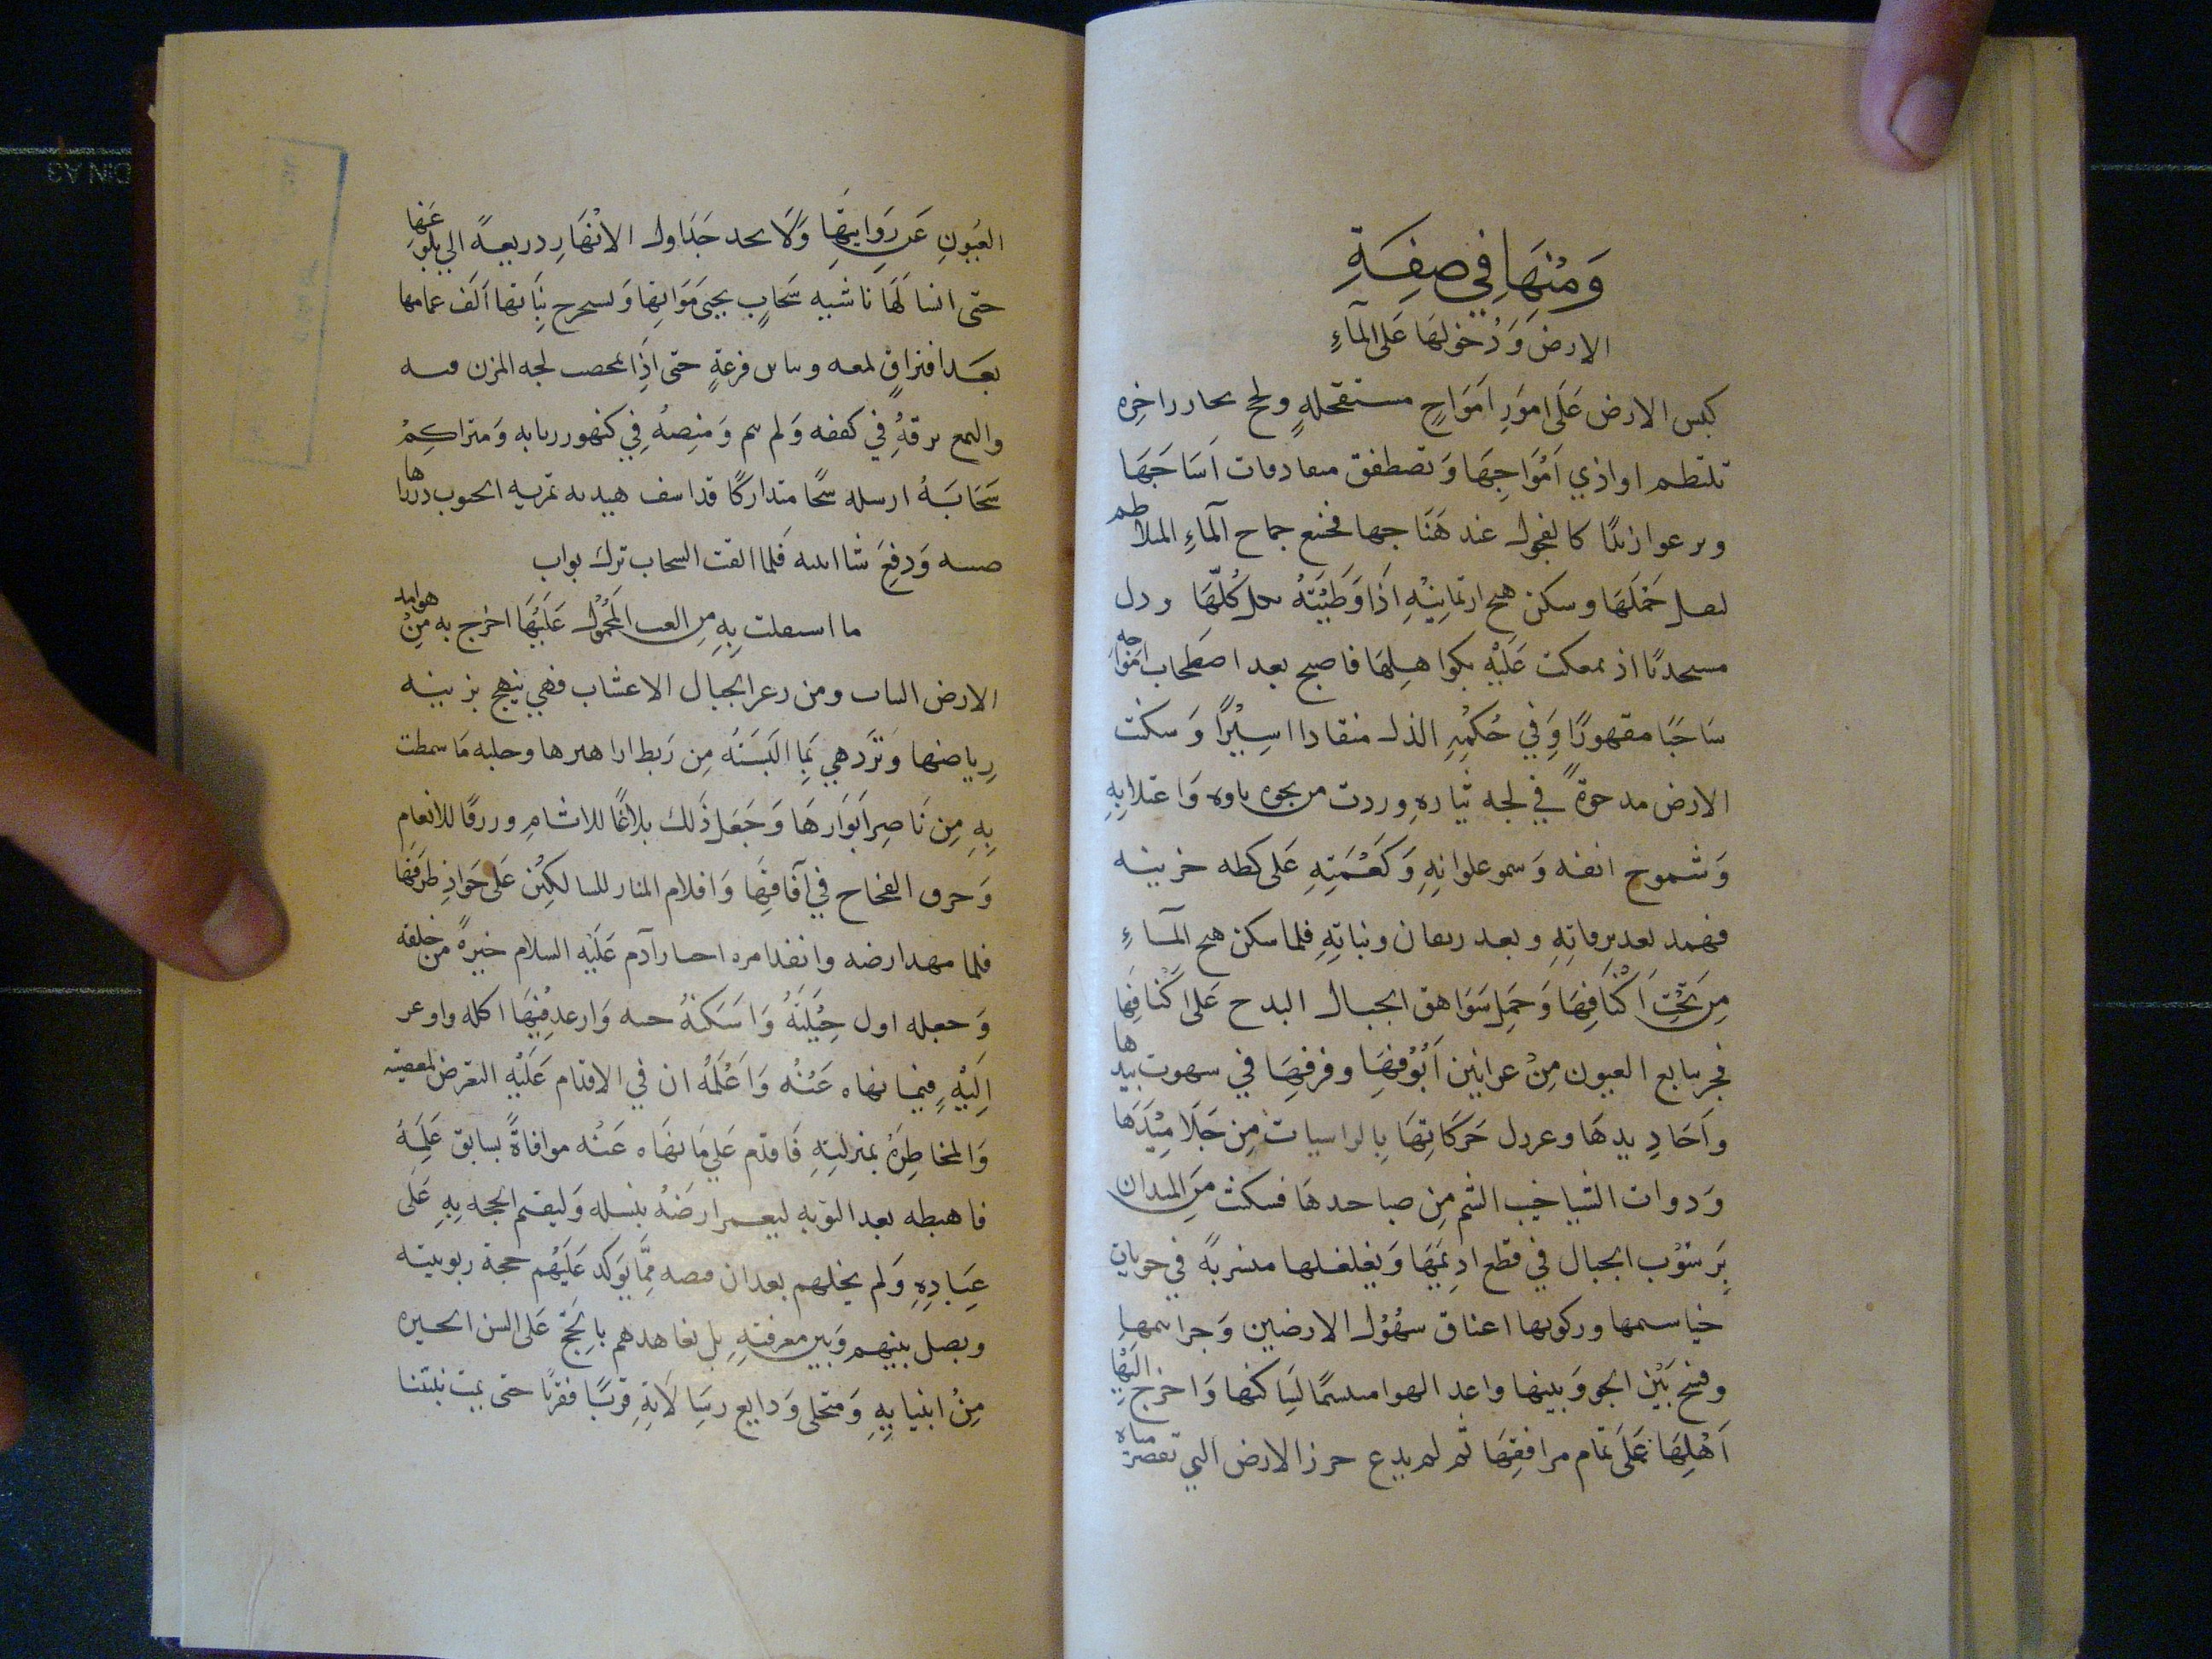 وَمِنْهَا فِي صِفَةِ
الارض وَدُخولهَا عَلى المآءِ
كبس الارض عَلَى امَورِ اَموَاجٍ مستقحلهٍ ولجج بحار زاخِره
تلتطم اواذي اَمْوَاجِهَا وَتصطفق متقاذفات اَسَاجَهَا
وبرعوا زبدًا كالفحول عند هَيَاجها فخضع جماح المآءِ المتلاطم
لعل حَملَهَا وسكن هيج ارتمايِيْهِ اِذَا وَطِيْتهُ بكلكلّهَا وذل
مستحديًا اذ تمعكت عَلَيْهِ بكوا هِلهَا فاصبح بعد اصطحاب امواجه
سَاجيَا مقهورًا وَفِي حُكمْهِ الذل منقادا اسِيْرًا وَسكنت
الارض مدحوةً في لجه تيارهِ وردت من نخوه باوه وَاعتلايِهِ
وَشموح انفه وَسمو علوائهِ وَكَعْمَتِهِ عَلى كظه خريته
فهمد بعد نزقاتهِ وبعد ريعان وثباتهِ فلما سكن هيج المآءِ
مِن تَحْتِ اَكْنَافِهَا وَحَمِل سَوَاهق الجبال البدح عَلى اكْنافِهَا
فجر ينابع العيون مِنْ عرانين اَنُوْفِهَا وفرقهَا في سهوت بيدها
واَخادِيدهَا وعدل حَركَاتِهَا بِالراسيات مِن جَلَامِيْدَهَا
وَدوات الشياخيب الشم مِن صياحدهَا فسكنت مِن الميدان
بِرَسُوْب الجبال في قطع ادِيمَهَا وَيغلغلها متسربَةً في حوبات
خياسمها وركوبها اعناق سهُوْل الارضين وَجراثمها
وفسح بَيْن الجو وَبينها واعد الهوا متنسمًا لِسَاكنها وَاخرج اليَهْا
اَهْلِهَا عَلَى تمام مرافقِهَا ثم لم يدع حرز الارض التي تقصر مياه
العيُونِ عَن رَوَابيَهَا وَلَا يجد جَدَاول الانْهَارِ دريعةً الي بلوغهِا
حتى انشا لَهَا ناشيه سَحَابٍ يحيى مَوَاتِها وَيستخرج نَبَاتها اَلَف غمامها
بعَد افتراقٍ لمعه وتباين فرعةٍ حتى اِذَا تمحصت لجه المزن فيه
والتمع برقهُ في كففه وَلم ينم وَمِيضهُ فِي كنهور ربابه وَمتراكِمُ
سَحَابَهُ ارسله سحًا متداركًا قد اسف هيدبه تمريه الجنوب دررها
صببه وَدفِعَ شا ابيبه فَلما القت السحاب ترك بواب
ما استقلت بِهِ مِن العب المَحْمُوْل عَلَيْهَا اخرج به مِنْ هوامد
الارض النبات ومن زعر الجبال الاعشاب فهي تبهج بزينه
رِياضها وَتزدهي بَما البَستَهُ مِن رَيط ازاهيرها وحليه مَا سمطت
بِهِ مِن نَاضِر اَنوَارهَا وَجَعَل ذَلك بلاغًا للانامِ ورزقًا للانعام
وَخرق الفجاج في آفَاقِهَا وَاقلام المنار للسالكِيْن عَلى جَوَادِ طرَقهَا
فلما مهد ارضه وانفذ امره اختار آدم عَليْهِ السلام خيرةً من خلقه
وَجعله اول جِبْلَتهُ وَاسَكنهُ جنه وَارعد فِيْهَا اكله واوعز
اِلَيْهِ فيما نهاه عَنْهُ وَاَعْلَمُهُ ان في الاقدام عَلَيْهِ التعرض لمعصيته
وَالمخاطِرَهُ بمنزلتِهِ فَاقدم عَلي مَا نهَاه عَنْه موافاةً بسابق عَلِمَهُ
فاهبطه بعد التوبه ليعمر ارضَهُ بنسله وَليقيم الحجه بِهِ عَلى
عِبَادِهِ وَلم يخلهم بعد ان قبضه مِمَّا يَوكد عَلَيْهُم حجة ربوبيته
ويصل بينهم وَبين معرفتهِ بل تعاهدهم بالحجج عَلى السن الخيره
مِنْ انبيايِهِ وَمتحملى وَدايع رسَالَاتِهِ قرنًا فقرنًا حتى تمت بنبينا